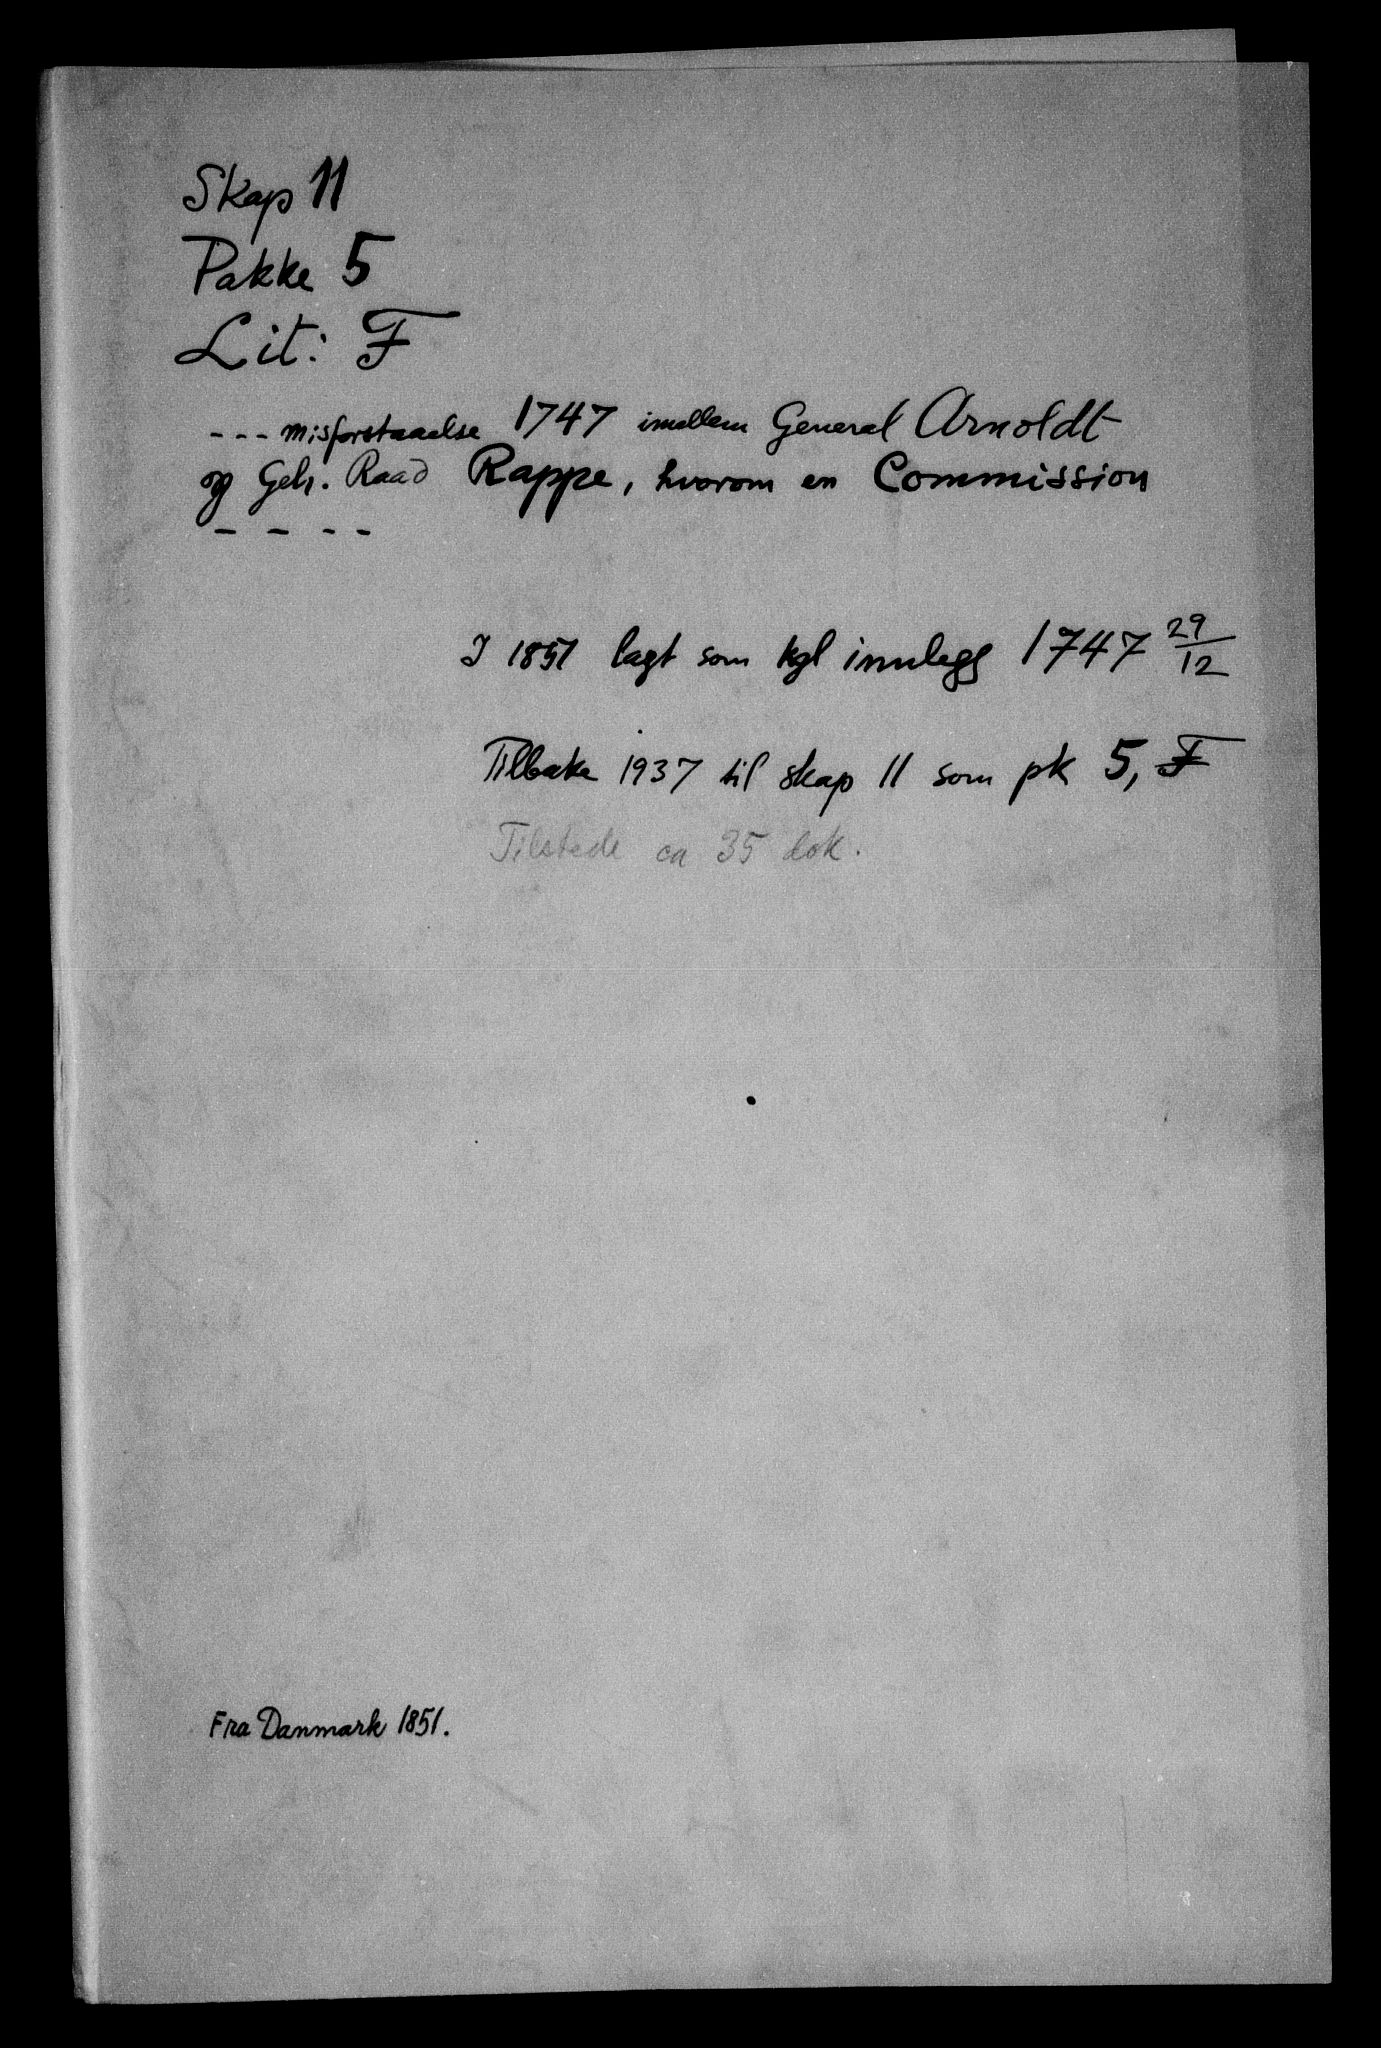 Skap 11
Pakke 5
Lit: F
--- misforstaaelse 1747 imellem General Arnoldt
og Geh. Raad Rappe, hvorom en Commission
- - - -
I 1851 lagt som kgl innlegg 1747 29/12
Tilbake 1937 til skap 11 som pk 5, F
Tilstede ca 35 dok.
Fra Danmark 1851.